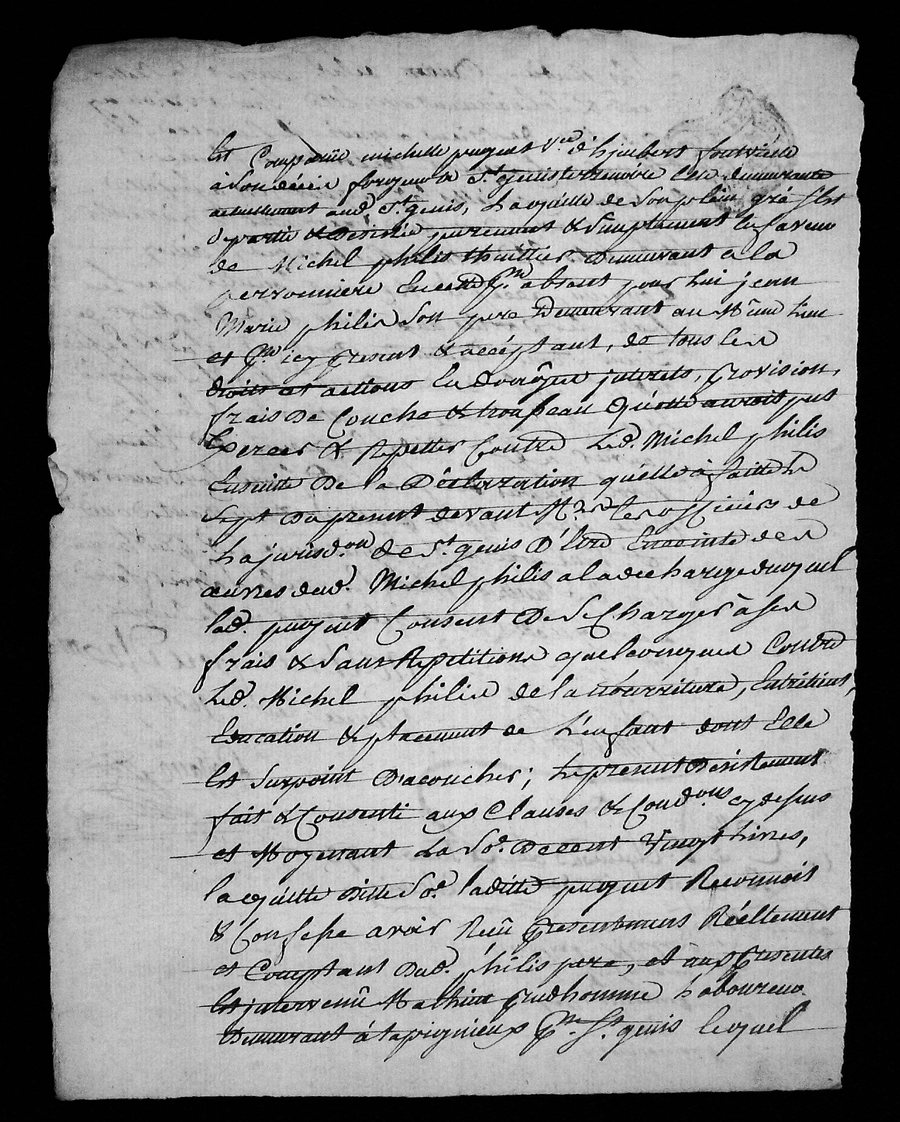 Est Comparüe michelle puyent v.ve d'hjubert fontvielle
à Son décés forgeur de St. genisterrenoire Elle demeurante
actuellement aud. St. genis, Laquelle de Son plein gré S'Est
departie & Desistée purement & Simplement En faveur
de Michel philis thuillier Demeurant a la
perronniere Susd. p.sse absent pour lui jean
Marie philis Son pere Demeurant au Même Lieu
et p.sse icy present & acceptant, de tous les
droits et actions En domages interets, provision,
frais De Couche & troupeau qu'elle auroit put
Exercer & Repetter Contre Led. Michel philis
Ensuitte De la Déclaration qu'elle à faitte le
Sept Du present devant Mrs. les officiers de
La jurisd.on de St. genis D'Etre Enceinte des
œuvres dud. Michel philis a la decharge duquel
lad. puyent Consent De Se Charger à ses
frais & Sans Repetitions quelconques Contre
Led. Michel philis de la nourriture, Entretient,
Education & placement de L'enfant dont Elle
Est Sur point D'acoucher; Le present Désistement
fait & Consenti aux Clauses & Cond.ons cy dessus
et Moyenant La So.e De cent vingt Livres,
laquelle Ditte So.e laditte puyent Reconnois
& Confesse avoir Reçû presentement Réellement
et Comptant Dud. philis pere, et aux presentes
Est intervenû Mathieu prudhomme Laboureur
Demeurant à p.sse St. genis lequel